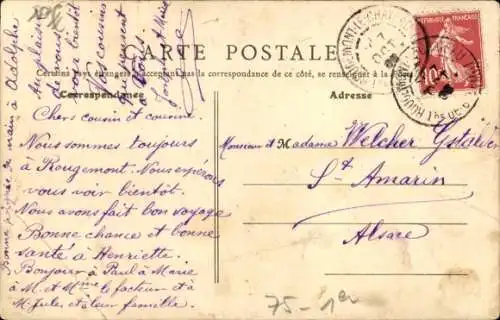 CARTE POSTALE
Certains pays étrangers n'acceptant pas la correspondance de ce côté, se renseigner à la
Correspondance
Adresse
RÉPUBLIQUE FRANÇAISE
10
Chers cousin et cousine
Nous sommes toujours
à Rougemont. Nous espérons
vous voir bientôt.
Nous avons fait bon voyage
Bonne chance et bonne
santé à Henriette.
Bonjour à Paul à Marie
à M. et Mme le facteur et à
M. Jules et à leur famille.
Bonne poignée de main à Adolphe
Au plaisir
de vous
voir bientôt
Vos cousins
Monsieur et Madame Welcher
St Amarin
Alsace
75-1er